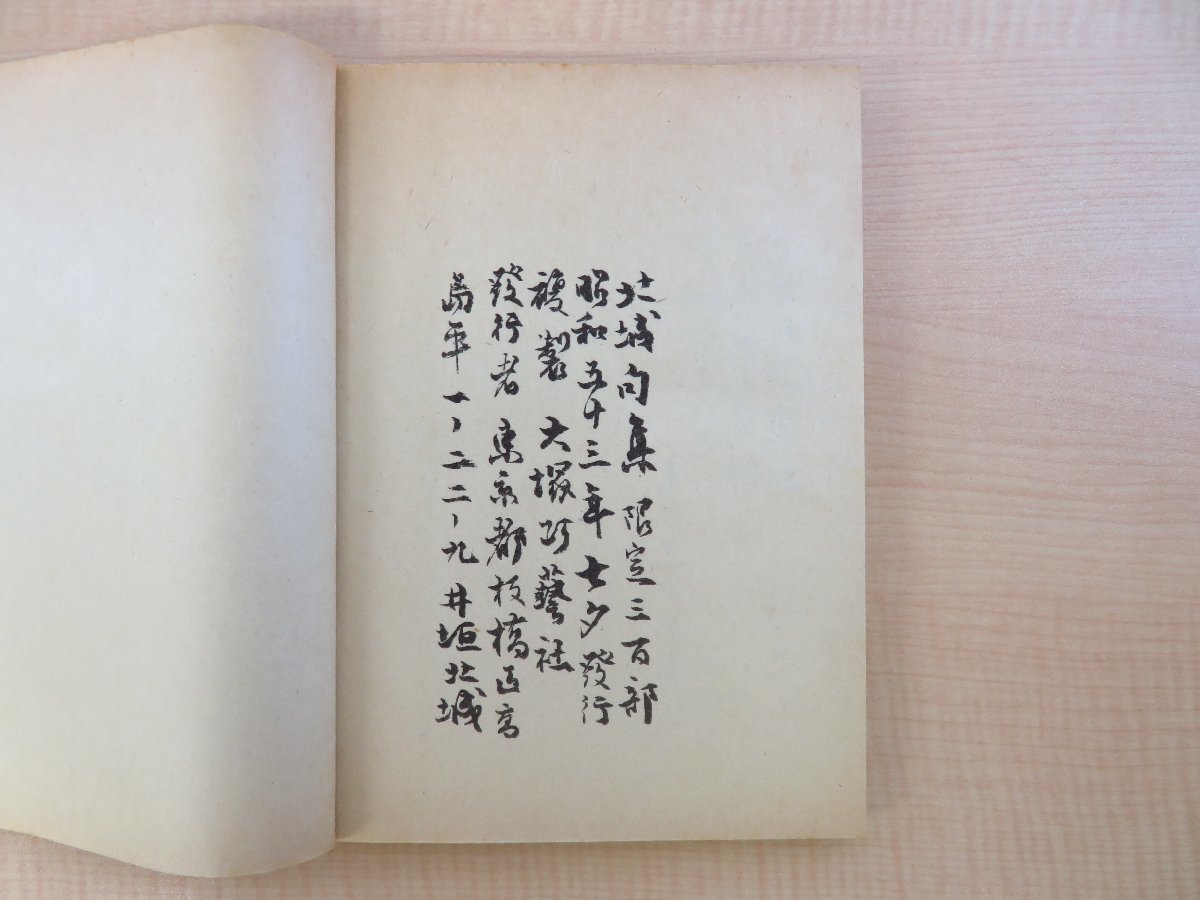 北城句集 限定三百部
昭和五十三年七夕発行
複製 大塚巧藝社
發行者 東京都板橋区高
島平一ノ二二ノ九 井垣北城